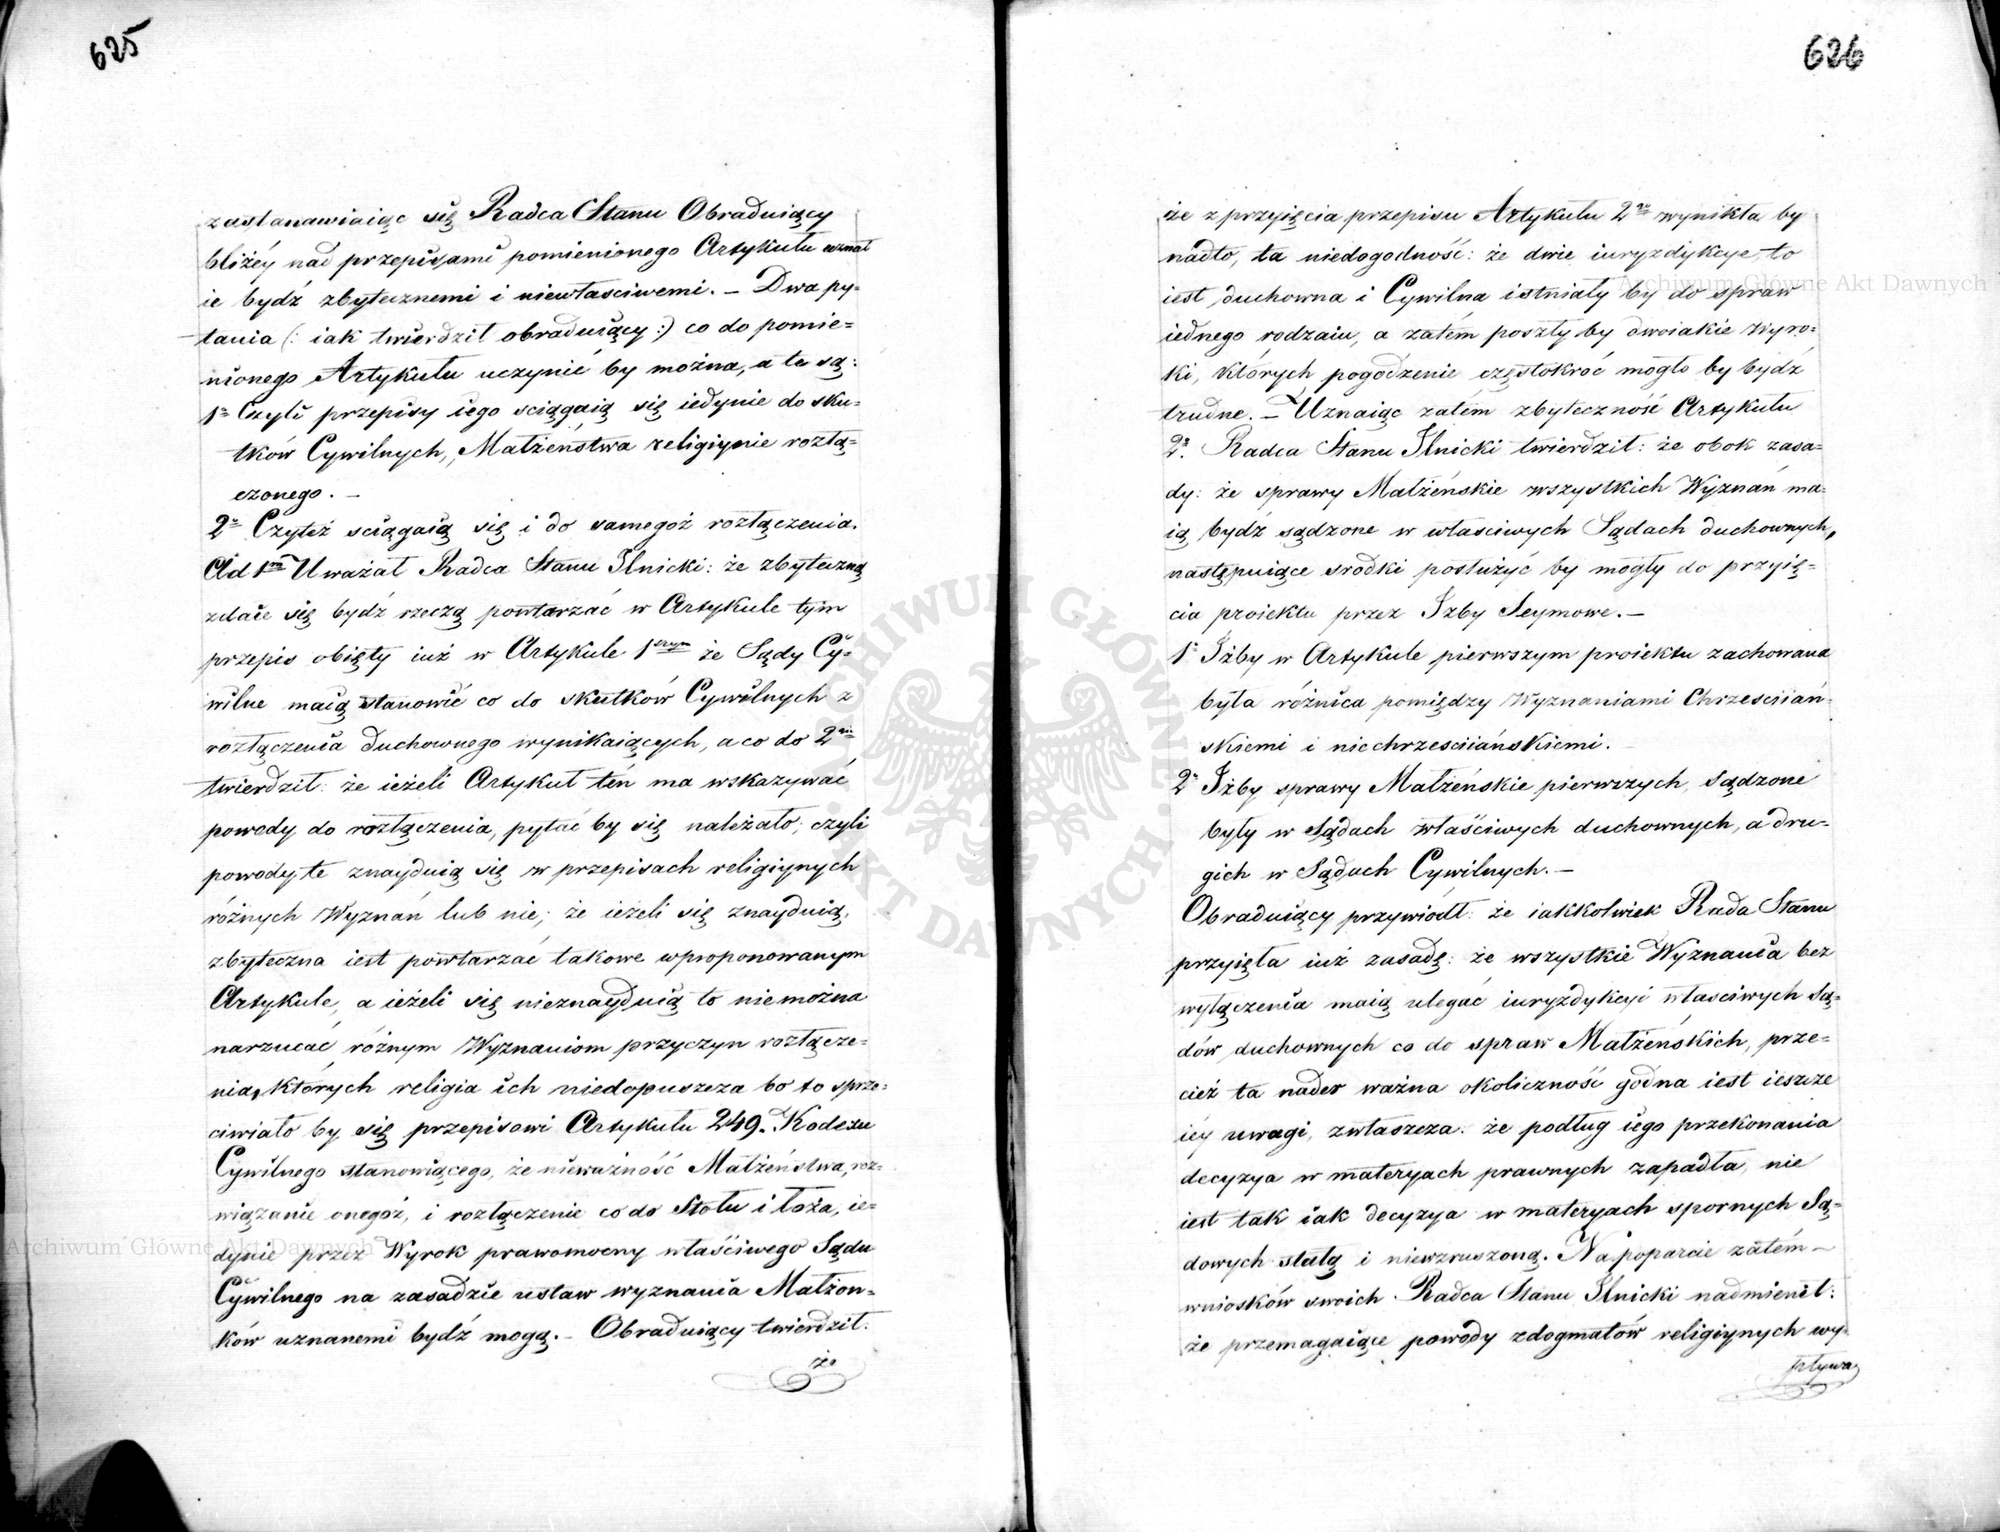 625
zastanawiaiąc się Radca Stanu Obraduiący
bliżéy nad przepisami pomienionego Artykułu uznał
ie bydź zbytecznemi i niewłasciwemi. – Dwa py-
tania (: iak twierdził obraduiący :) co do pomie-
nionego Artykułu uczynić by można, a te są:
1º Czyli przepisy iego sciągaią się iedynie do sku-
tków Cywilnych, Małżeństwa religiynie rozłą-
czonego. –
2º Czyteż sciągaią się i do samegoż rozłączenia.
Ad 1m Uważał Radca Stanu Ilnicki: że zbyteczną
zdaie się bydź rzeczą powtarzać w Artykule tym
przepis obięty iuż w Artykule 1szym że Sądy Cy-
wilne maią stanowić co do skutków Cywilnych z
rozłączenia duchownego wynikaiących, a co do 2go
twierdził: że ieżeli Artykuł tén ma wskazywać
powody do rozłączenia, pytać by się należało; czyli
powody te znayduią się w przepisach religiynych
różnych Wyznań lub nie; że ieżeli się znayduią,
zbyteczna iest powtarzać takowe w proponowanym
Artykule, a ieżeli się nieznayduią to niemożna
narzucać różnym Wyznaniom przyczyn rozłącze-
nia, których religia ich niedopuszcza bo to sprze-
ciwiało by się przepisowi Artykułu 249. Kodexu
Cywilnego stanowiącego, że nieważność Małżeństwa, roz-
wiązanie onegoż, i rozłączenie co do Stołu i łoża, ie-
dynie przez Wyrok prawomocny właściwego Sądu
Cywilnego na zasadzie ustaw wyznania Małżon-
ków uznanemi bydź mogą. – Obraduiący twierdził:
że
626
że z przyięcia przepisu Artykułu 2go wynikła by
nadto, ta niedogodność: że dwie iuryzdykcye, to
iest duchowna i Cywilna istniały by do spraw
iednego rodzaiu, a zatém poszły by dwoiakie Wyro-
ki, których pogodzenie częstokroć mogło by bydź
trudne. – Uznaiąc zatém zbyteczność Artykułu
2º. Radca Stanu Ilnicki twierdził: że obok zasa-
dy: że sprawy Małżeńskie wszystkich Wyznań ma-
ią bydź sądzone w własciwych Sądach duchownych,
następuiące srodki posłużyć by mogły do przyię-
cia proiektu przez Izby Seymowe. –
1º Iżby w Artykule pierwszym proiektu zachowana
była różnica pomiędzy Wyznaniami Chrzesciiań-
skiemi i niechrzesciiańskiemi.
2º Iżby sprawy Małżeńskie pierwszych, Sądzone
były w Sądach właściwych duchownych, a dru-
gich w Sądach Cywilnych. –
Obraduiący przywiódł: że iakkolwiek Rada Stanu
przyięła iuż zasadę: że wszystkie Wyznania bez
wyłączenia maią ulegać iuryzdykcyi własciwych Są-
dów duchownych co do spraw Małżeńskich, prze-
cież ta nader ważna okoliczność godna iest ieszcze
iéy uwagi, zwłaszcza: że podług iego przekonania
decyzya w materyach prawnych zapadła, nie
iest tak iak decyzya w materyach spornych Są-
dowych stałą i niewzruszoną. Na poparcie zatém –
wniosków swoich Radca Stanu Ilnicki nadmienił:
że przemagaiące powody z dogmatów religiynych wy-
pływa